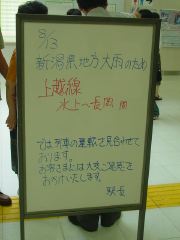 8/3
新潟県地方大雨のため
上越線
水上～長岡 間
では列車の運転を見合わせて
おります。
お客さまには大変ご迷惑を
おかけいたします。
駅長